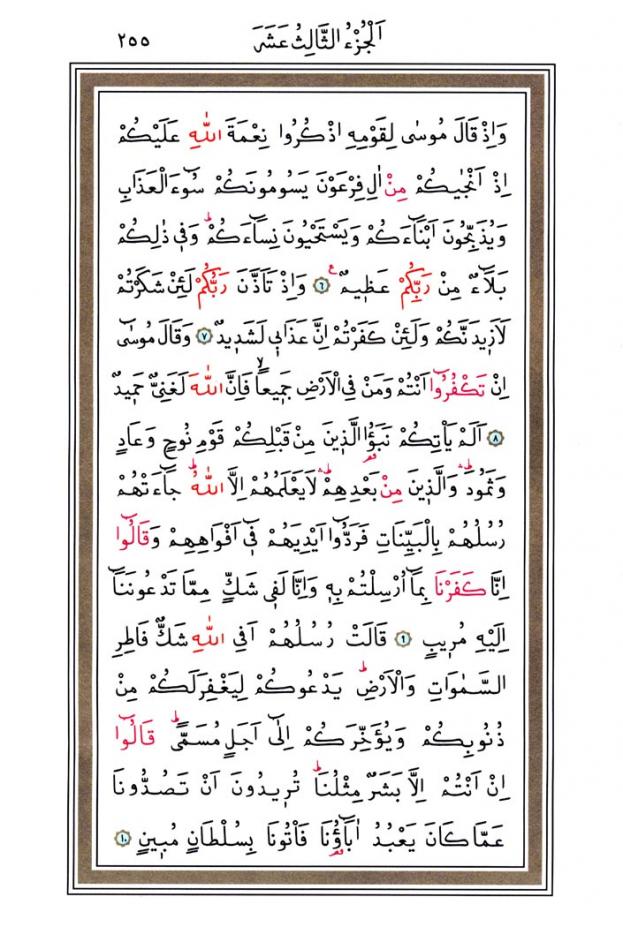 اَلْجُزْءُ الثَّالِثُ عَشَرَ ٢٥٥
وَاِذْ قَالَ مُوسٰى لِقَوْمِهِ اذْكُرُوا نِعْمَةَ اللّٰهِ عَلَيْكُمْ
اِذْ اَنْجٰيكُمْ مِنْ اٰلِ فِرْعَوْنَ يَسُومُونَكُمْ سُٓوءَ الْعَذَابِ
وَيُذَبِّحُونَ اَبْنَٓاءَكُمْ وَيَسْتَحْيُونَ نِسَٓاءَكُمْۜ وَف۪ي ذٰلِكُمْ
بَلَٓاءٌ مِنْ رَبِّكُمْ عَظ۪يمٌ۟ ﴿٦﴾ وَاِذْ تَاَذَّنَ رَبُّكُمْ لَئِنْ شَكَرْتُمْ
لَاَز۪يدَنَّكُمْ وَلَئِنْ كَفَرْتُمْ اِنَّ عَذَاب۪ي لَشَد۪يدٌ ﴿٧﴾ وَقَالَ مُوسٰٓى
اِنْ تَكْفُرُٓوا اَنْتُمْ وَمَنْ فِي الْاَرْضِ جَم۪يعاًۙ فَاِنَّ اللّٰهَ لَغَنِيٌّ حَم۪يدٌ
﴿٨﴾ اَلَمْ يَأْتِكُمْ نَبَؤُا الَّذ۪ينَ مِنْ قَبْلِكُمْ قَوْمِ نُوحٍ وَعَادٍ
وَثَمُودَۜ وَالَّذ۪ينَ مِنْ بَعْدِهِمْۜ لَا يَعْلَمُهُمْ اِلَّا اللّٰهُۜ جَٓاءَتْهُمْ
رُسُلُهُمْ بِالْبَيِّنَاتِ فَرَدُّٓوا اَيْدِيَهُمْ ف۪ٓي اَفْوَاهِهِمْ وَقَالُٓوا
اِنَّا كَفَرْنَا بِمَٓا اُرْسِلْتُمْ بِه۪ وَاِنَّا لَف۪ي شَكٍّ مِمَّا تَدْعُونَنَٓا
اِلَيْهِ مُر۪يبٍ ﴿٩﴾ قَالَتْ رُسُلُهُمْ اَفِي اللّٰهِ شَكٌّ فَاطِرِ
السَّمٰوَاتِ وَالْاَرْضِۜ يَدْعُوكُمْ لِيَغْفِرَ لَكُمْ مِنْ
ذُنُوبِكُمْ وَيُؤَخِّرَكُمْ اِلٰٓى اَجَلٍ مُسَمًّىۜ قَالُٓوا
اِنْ اَنْتُمْ اِلَّا بَشَرٌ مِثْلُنَاۜ تُر۪يدُونَ اَنْ تَصُدُّونَا
عَمَّا كَانَ يَعْبُدُ اٰبَٓاؤُ۬نَا فَأْتُونَا بِسُلْطَانٍ مُب۪ينٍ ﴿١٠﴾